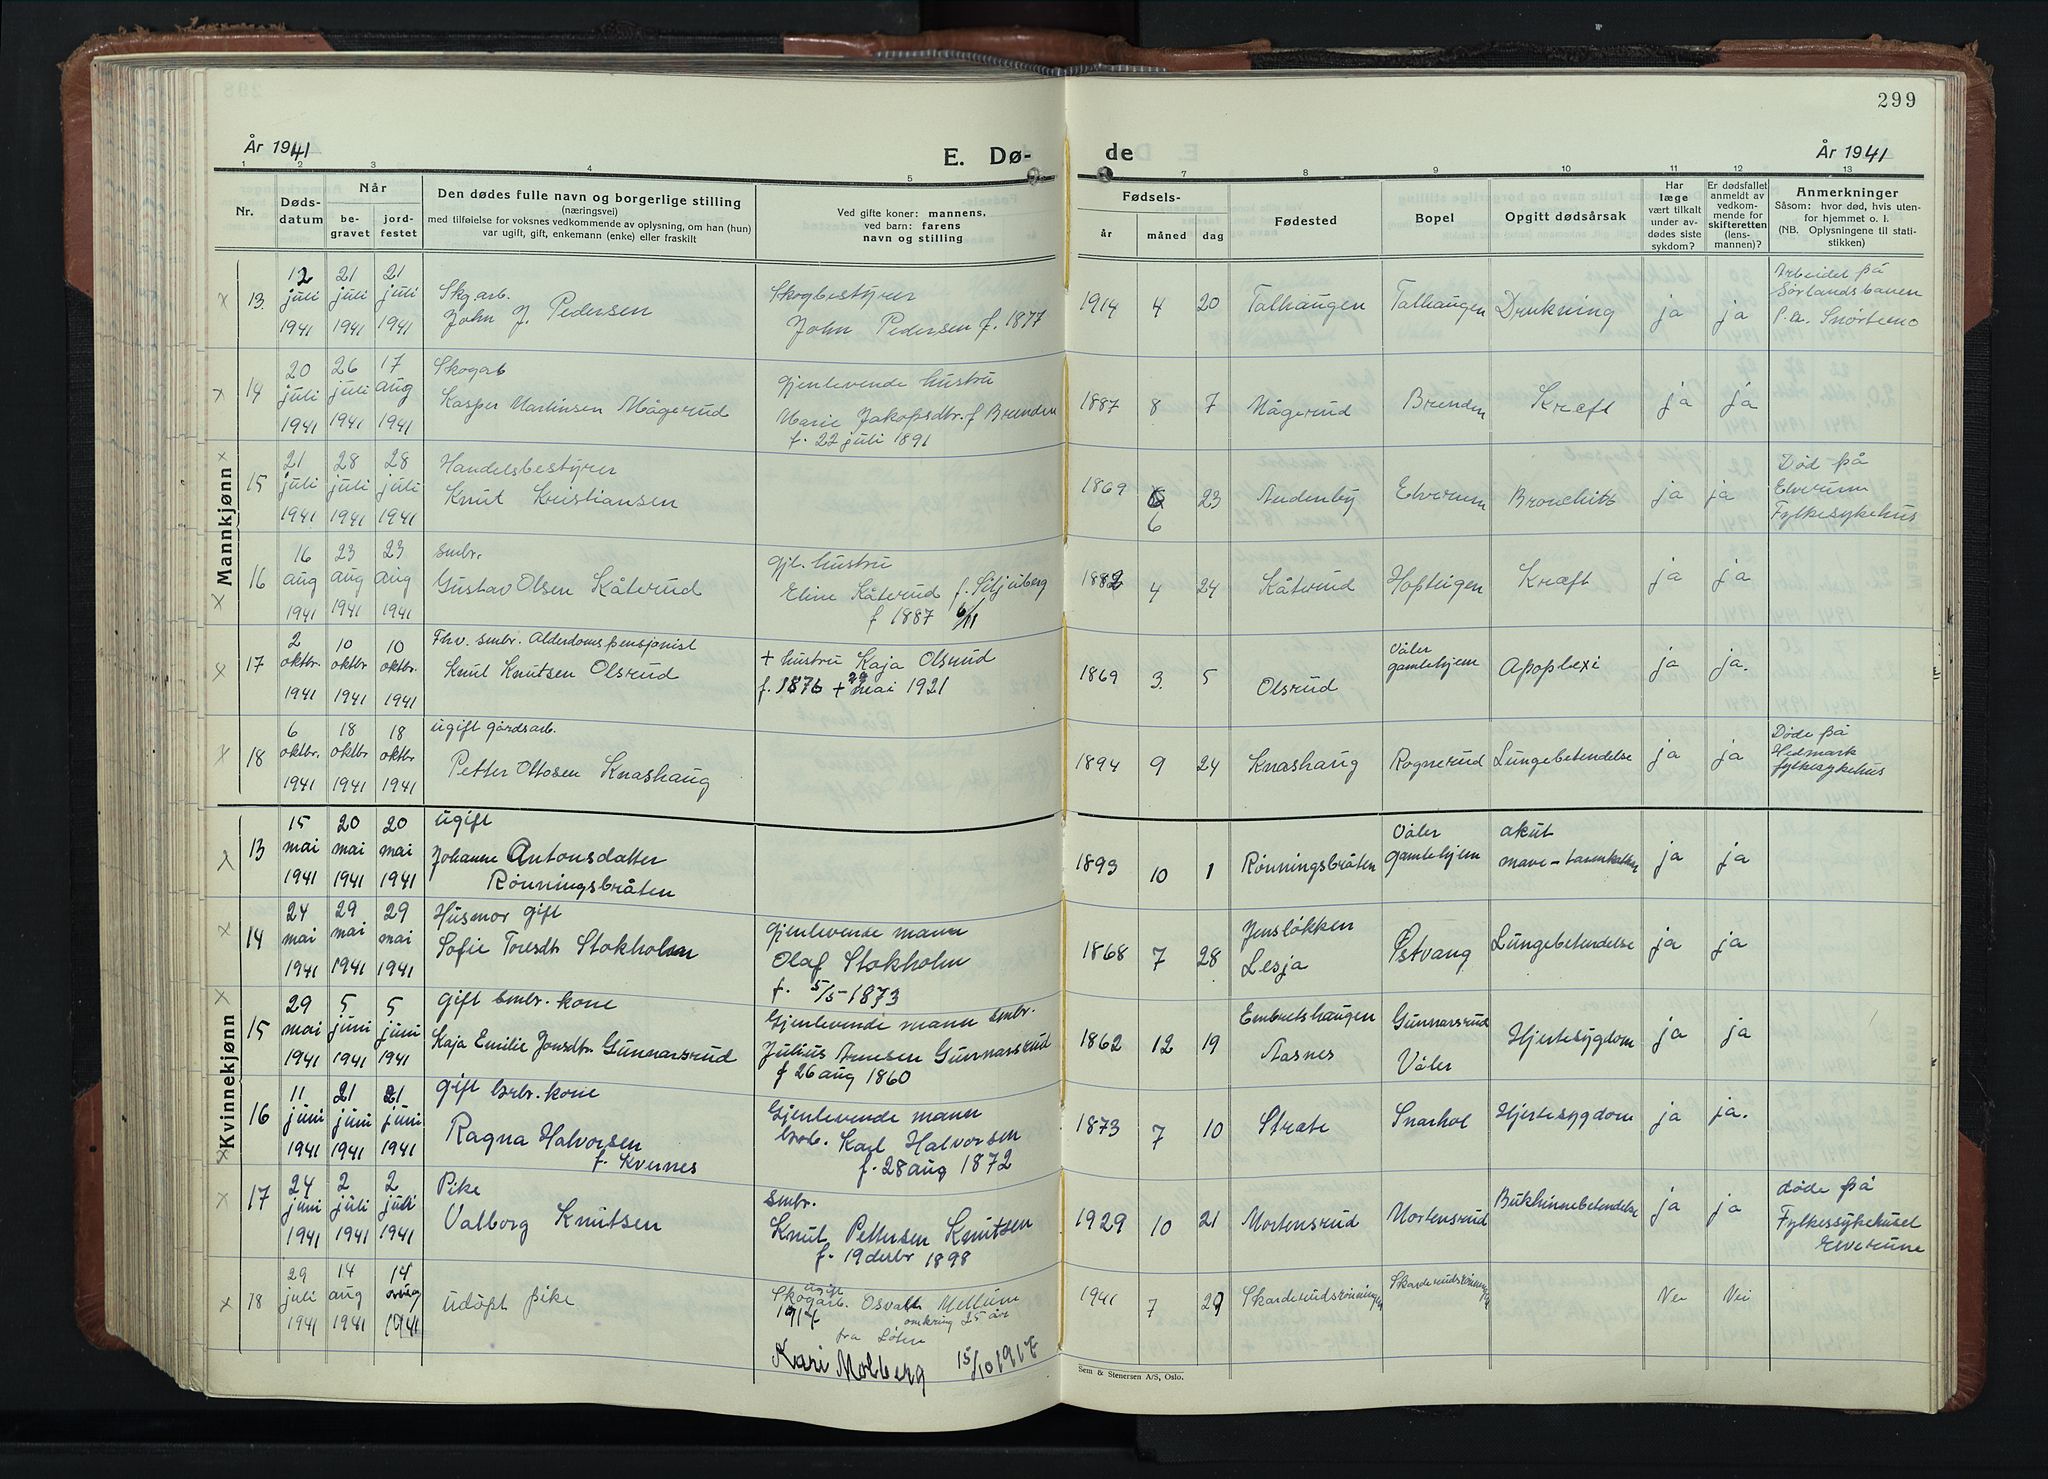 299
År 1941
E. Dø-
de
År 1941
1 2 3 4 5 7 8 9 10 11 12 13
Nr.
Døds-
datum
Når
be-
gravet
jord-
festet
Den dødes fulle navn og borgerlige stilling
(næringsvei)
med tilføielse for voksnes vedkommende av oplysning, om han (hun)
var ugift, gift, enkemann (enke) eller fraskilt
Ved gifte koner: mannens,
ved barn: farens
navn og stilling
Fødsels-
år måned dag
Fødested
Bopel
Opgitt dødsårsak
Har
læge
vært tilkalt
under av-
dødes siste
sykdom?
Er dødsfallet
anmeldt av
vedkom-
mende for
skifteretten
(lens-
mannen)?
Anmerkninger
Såsom: hvor død, hvis uten-
for hjemmet o. l.
(NB. Oplysningene til stati-
stikken)
Mannkjønn
13. 12 juli 1941 21 juli 1941 21 juli 1941
Skgarb.
John J. Pedersen
Skogbestyrer
John Pedersen f. 1877
1914 4 20 Talhaugen Talhaugen Drukning ja ja
Arbeidet på
Sørlandsbanen
14 20 juli 1941 26 juli 1941 17 aug 1941
Skogarb
Kasper Martinsen Mågerud
Gjenlevende hustru
Marie Jakopsdtr. f Brenden
f. 22 juli 1891
1887 8 7 Mågerud Brenden Kræft ja ja
15 21 juli 1941 28 juli 1941 28 juli 1941
Handelsbestyrer
Knut Kristiansen
1869 6 23 Audenby Elverum Bronchitt ja ja
Død på
Elverum
Fylkesykehus
16 16 aug 1941 23 aug 1941 23 aug 1941
smbr.
Gustav Olsen Kåterud
gjl. hustru
Eline Kåterud f. Siljuberg
f 1887 6/11
1882 4 24 Kåterud Hoptegen Kræft ja ja
17 2 oktbr. 1941 10 oktbr 1941 10 oktbr. 1941
Fhv. smbr. Alderdomspensjonist
Knut Knutsen Olsrud
+ hustru Kaja Olsrud
f. 1876 + 29 mai 1921
1869 3. 5 Olsrud Våler gamlehjem Apoplexi ja ja.
18 6 oktbr. 1941 18 oktbr 1941 18 oktbr 1941
ugift gårdsarb.
Petter Ottosen Knashaug
1894 9 24 Knashaug Rognerud Lungebetendelse ja ja
Døde på
Hedmark
fylkesykehus
Kvinnekjønn
13 15 mai 1941 20 mai 1941 20 mai 1941
ugift
Johanne Antonsdatter
Rønningsbråten
1893 10 1 Rønningsbråten Våler gamlehjem akut mave-tarmkatarr ja ja
14 24 mai 1941 29 mai 1941 29 mai 1941
Husmor gift
Sofie Toresdtr Stokholm
Gjenlevende mann
Olaf Stokholm
f. 5/5-1873
1868 7 28 Jensløkken Lesja Østvang Lungebetendelse ja ja
15 29 mai 1941 5 juni 1941 5 juni 1941
gift smbr. kone
Kaja Emilie Jonsdtr Gunnarsrud
Gjenlevende mann smbr.
Julius Arnesen Gunnarsrud
f 26 aug 1860
1862 12 19 Embretshaugen Aasnes Gunnarsrud Våler Hjertesygdom ja ja
16 11 juni 1941 21 juni 1941 21 juni 1941
gift brbr. kone
Ragna Halvorsen
f. Kvernes
Gjenlevende mann
brb. Karl Halvorsen
f. 28 aug 1872
1873 7 10 Strate Snarhol Hjertesygdom ja ja.
17 24 juni 1941 2 juli 1941 2 juli 1941
Pike
Valborg Knutsen
Smbr.
Knut Pettersen Knutsen
f. 19 desbr 1898
1929 10 21 Mortensrud Mortensrud Bukhinnebetendelse ja ja
døde på
Fylkessykehuset
Elverum
18 29 juli 1941 14 aug 1941 14 aug 1941
udøpt pike
ugift
Skogarb. Osvald Mellum
1917 omkring 25 år
fra Løten
Kari Molberg 15/10 1917
1941 7 29 Skarderudsrønningen Skarderudsrønningen Nei Nei
Sem & Stenersen A/S, Oslo.